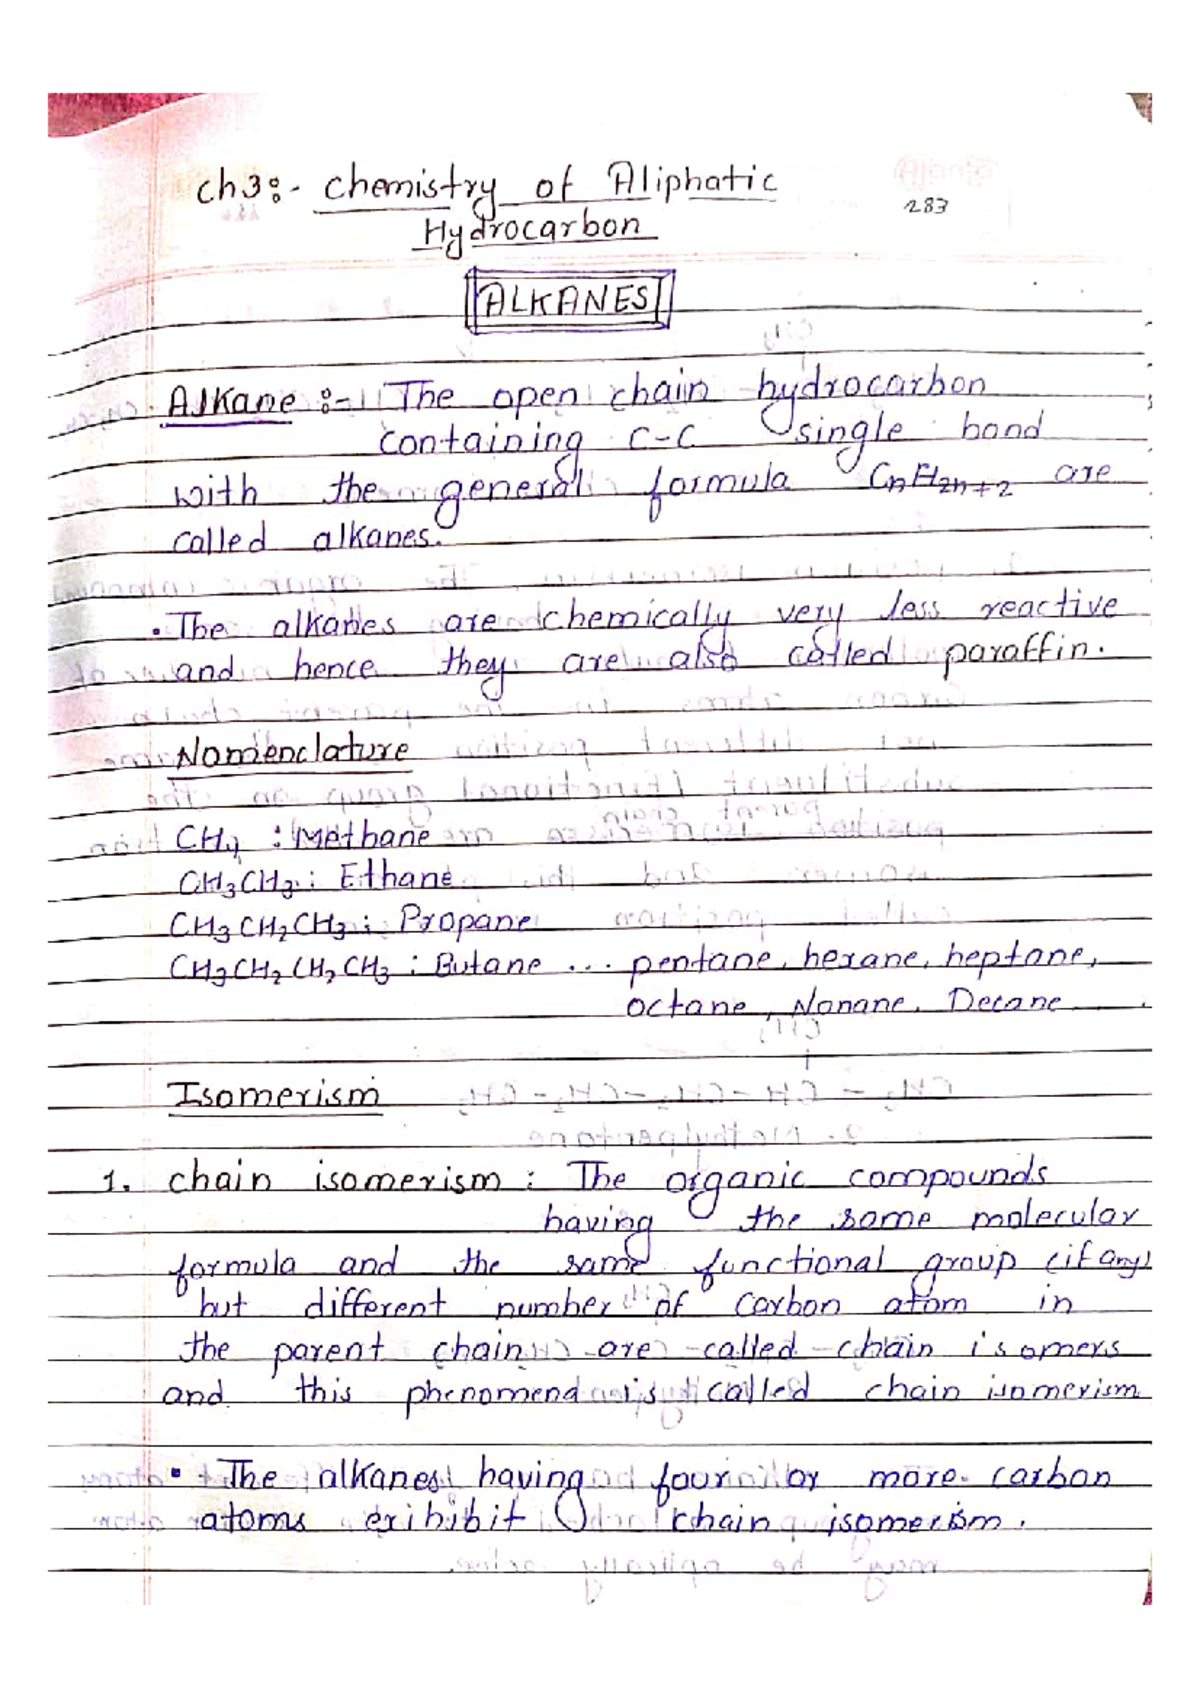 Ch3:- Chemistry of Aliphatic
283
Hydrocarbon
ALKANES
Alkane :- The open chain hydrocarbon
containing C-C single bond
with the general formula CnH2n+2 are
called alkanes.
• The alkanes are chemically very less reactive
and hence they are also called paraffin.
Nomenclature
CH4 : Methane
CH3CH3 : Ethane
CH3CH2CH3 : Propane
CH3CH2CH2CH3 : Butane ... pentane, hexane, heptane,
octane, Nonane, Decane
Isomerism
1. chain isomerism : The organic compounds
having the same molecular
formula and the same functional group (if any)
but different number of carbon atom in
the parent chain are called chain isomers
and this phenomena is called chain isomerism
• The alkanes having four or more carbon
atoms exihibit chain isomerism.